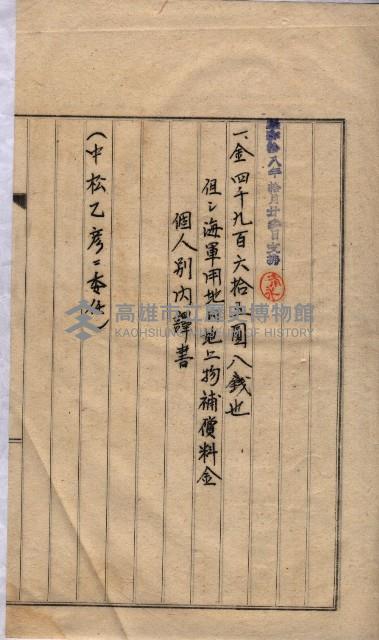 昭和拾八年拾月廿　日支拂
一、金四千九百六拾　圓八錢也
但シ海軍用地內地上物補償料金
個人別內譯書
(中松乙彦ニ委任)
高雄市立歷史博物館
KAOHSIUNG MUSEUM OF HISTORY